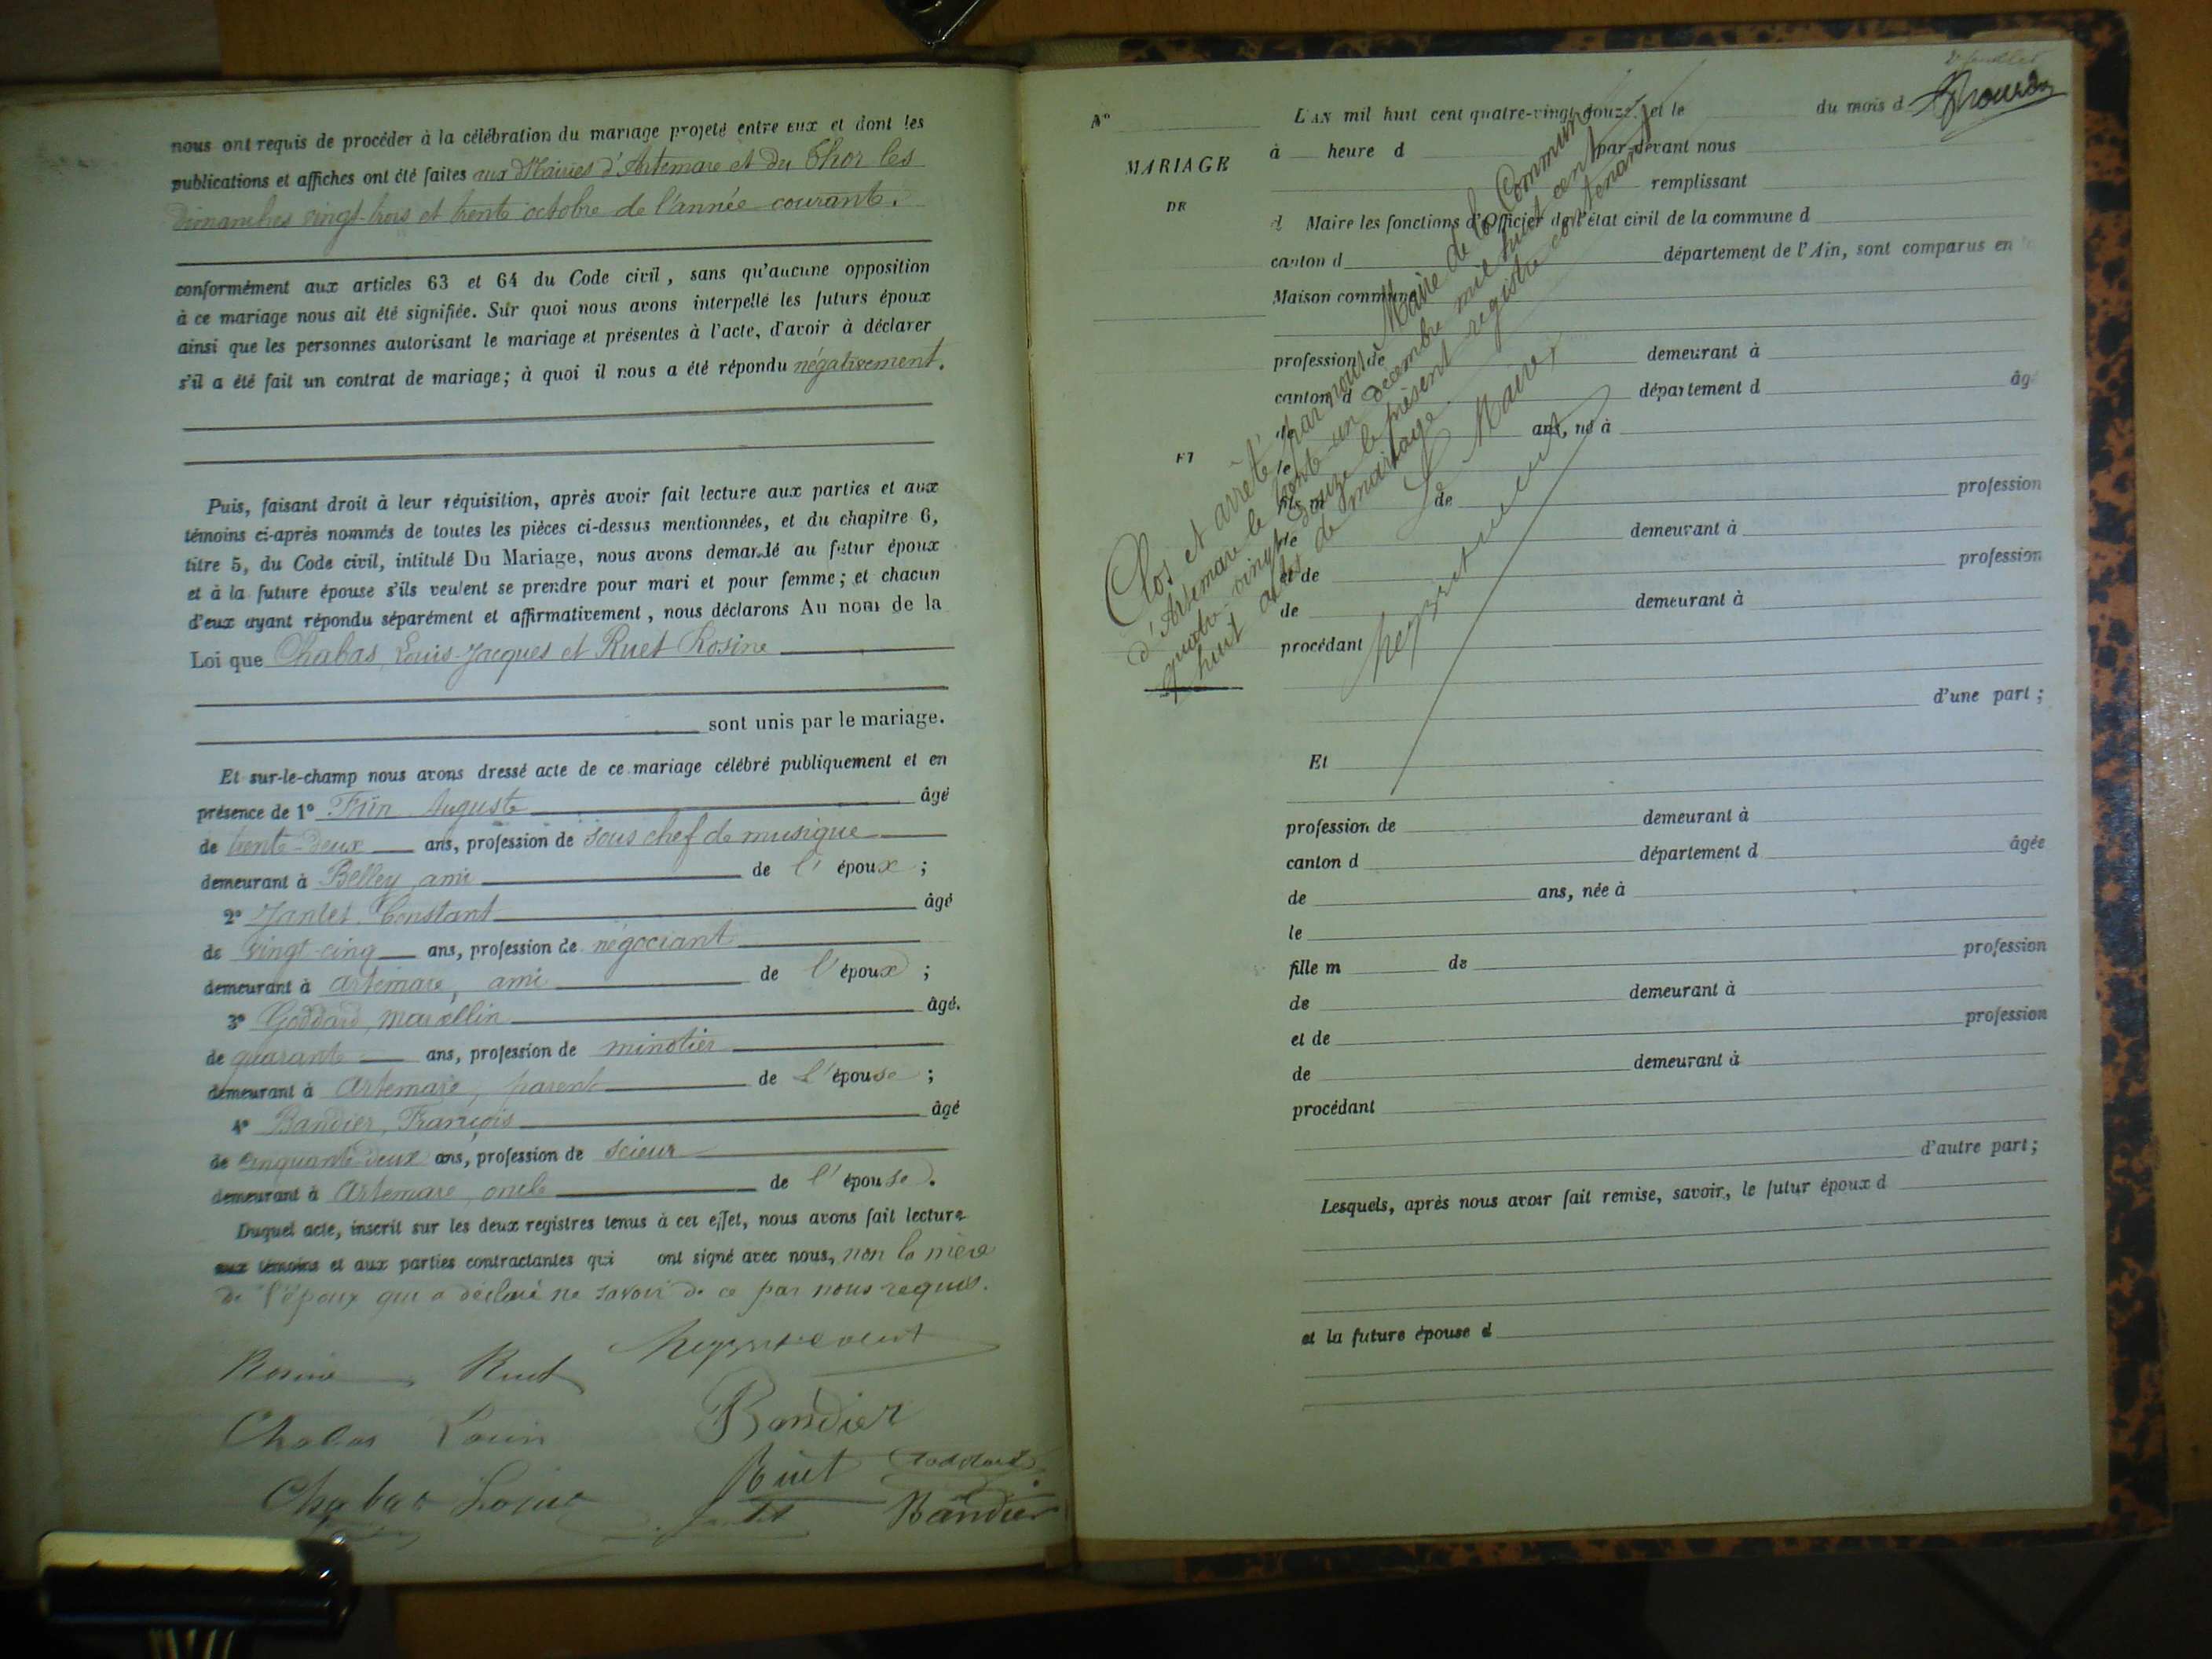 nous ont requis de procéder à la célébration du mariage projeté entre eux et dont les
publications et affiches ont été faites aux Mairies d'Artemare et du Thor les
dimanches vingt-trois et trente octobre de l'année courante.
conformément aux articles 63 et 64 du Code civil, sans qu'aucune opposition
à ce mariage nous ait été signifiée. Sur quoi nous avons interpellé les futurs époux
ainsi que les personnes autorisant le mariage et présentes à l'acte, d'avoir à déclarer
s'il a été fait un contrat de mariage; à quoi il nous a été répondu négativement.
Puis, faisant droit à leur réquisition, après avoir fait lecture aux parties et aux
témoins ci-après nommés de toutes les pièces ci-dessus mentionnées, et du chapitre 6,
titre 5, du Code civil, intitulé Du Mariage, nous avons demandé au futur époux
et à la future épouse s'ils veulent se prendre pour mari et pour femme; et chacun
d'eux ayant répondu séparément et affirmativement, nous déclarons Au nom de la
Loi que Chabas, Louis-Jacques et Ruet Rosine
sont unis par le mariage.
Et sur-le-champ nous avons dressé acte de ce mariage célébré publiquement et en
présence de 1° Auguste âgé
de trente-deux ans, profession de sous chef de musique
demeurant à Belley, ami de l'époux;
2° Jantet Constant âgé
de vingt-cinq ans, profession de négociant
demeurant à Artemare, ami de l'époux;
3° Goddard, Marcellin âgé.
de quarante ans, profession de minotier
demeurant à Artemare, parent de l'épouse;
4° Bandier, François âgé
de cinquante-deux ans, profession de scieur
demeurant à Artemare, oncle de l'épouse.
Duquel acte, inscrit sur les deux registres tenus à cet effet, nous avons fait lecture
aux témoins et aux parties contractantes qui ont signé avec nous, non la mère
de l'époux qui a déclaré ne savoir de ce par nous requis.
Rosine Ruet
Chabas Louis Bandier
Ruet Goddard
Chabas Louis Jantet Bandier
N° L'AN mil huit cent quatre-vingt-douze et le du mois d
à heure d par-devant nous
MARIAGE
remplissant
DE
d Maire les fonctions d'Officier de l'état civil de la commune d
canton d département de l'Ain, sont comparus en
Maison commune
profession de demeurant à
canton d département d âgé
de ans, né à
ET
le
fils m de profession
de demeurant à
et de profession
de demeurant à
procédant
d'une part;
Clos et arrêté par nous Maire de la Commune
d'Artemare le trente-un décembre mil huit cent
quatre-vingt-douze le présent registre contenant
huit actes de mariage.
Le Maire,
Et
profession de demeurant à
canton d département d âgée
de ans, née à
le
fille m de profession
de demeurant à
et de profession
de demeurant à
procédant
d'autre part;
Lesquels, après nous avoir fait remise, savoir, le futur époux d
et la future épouse d